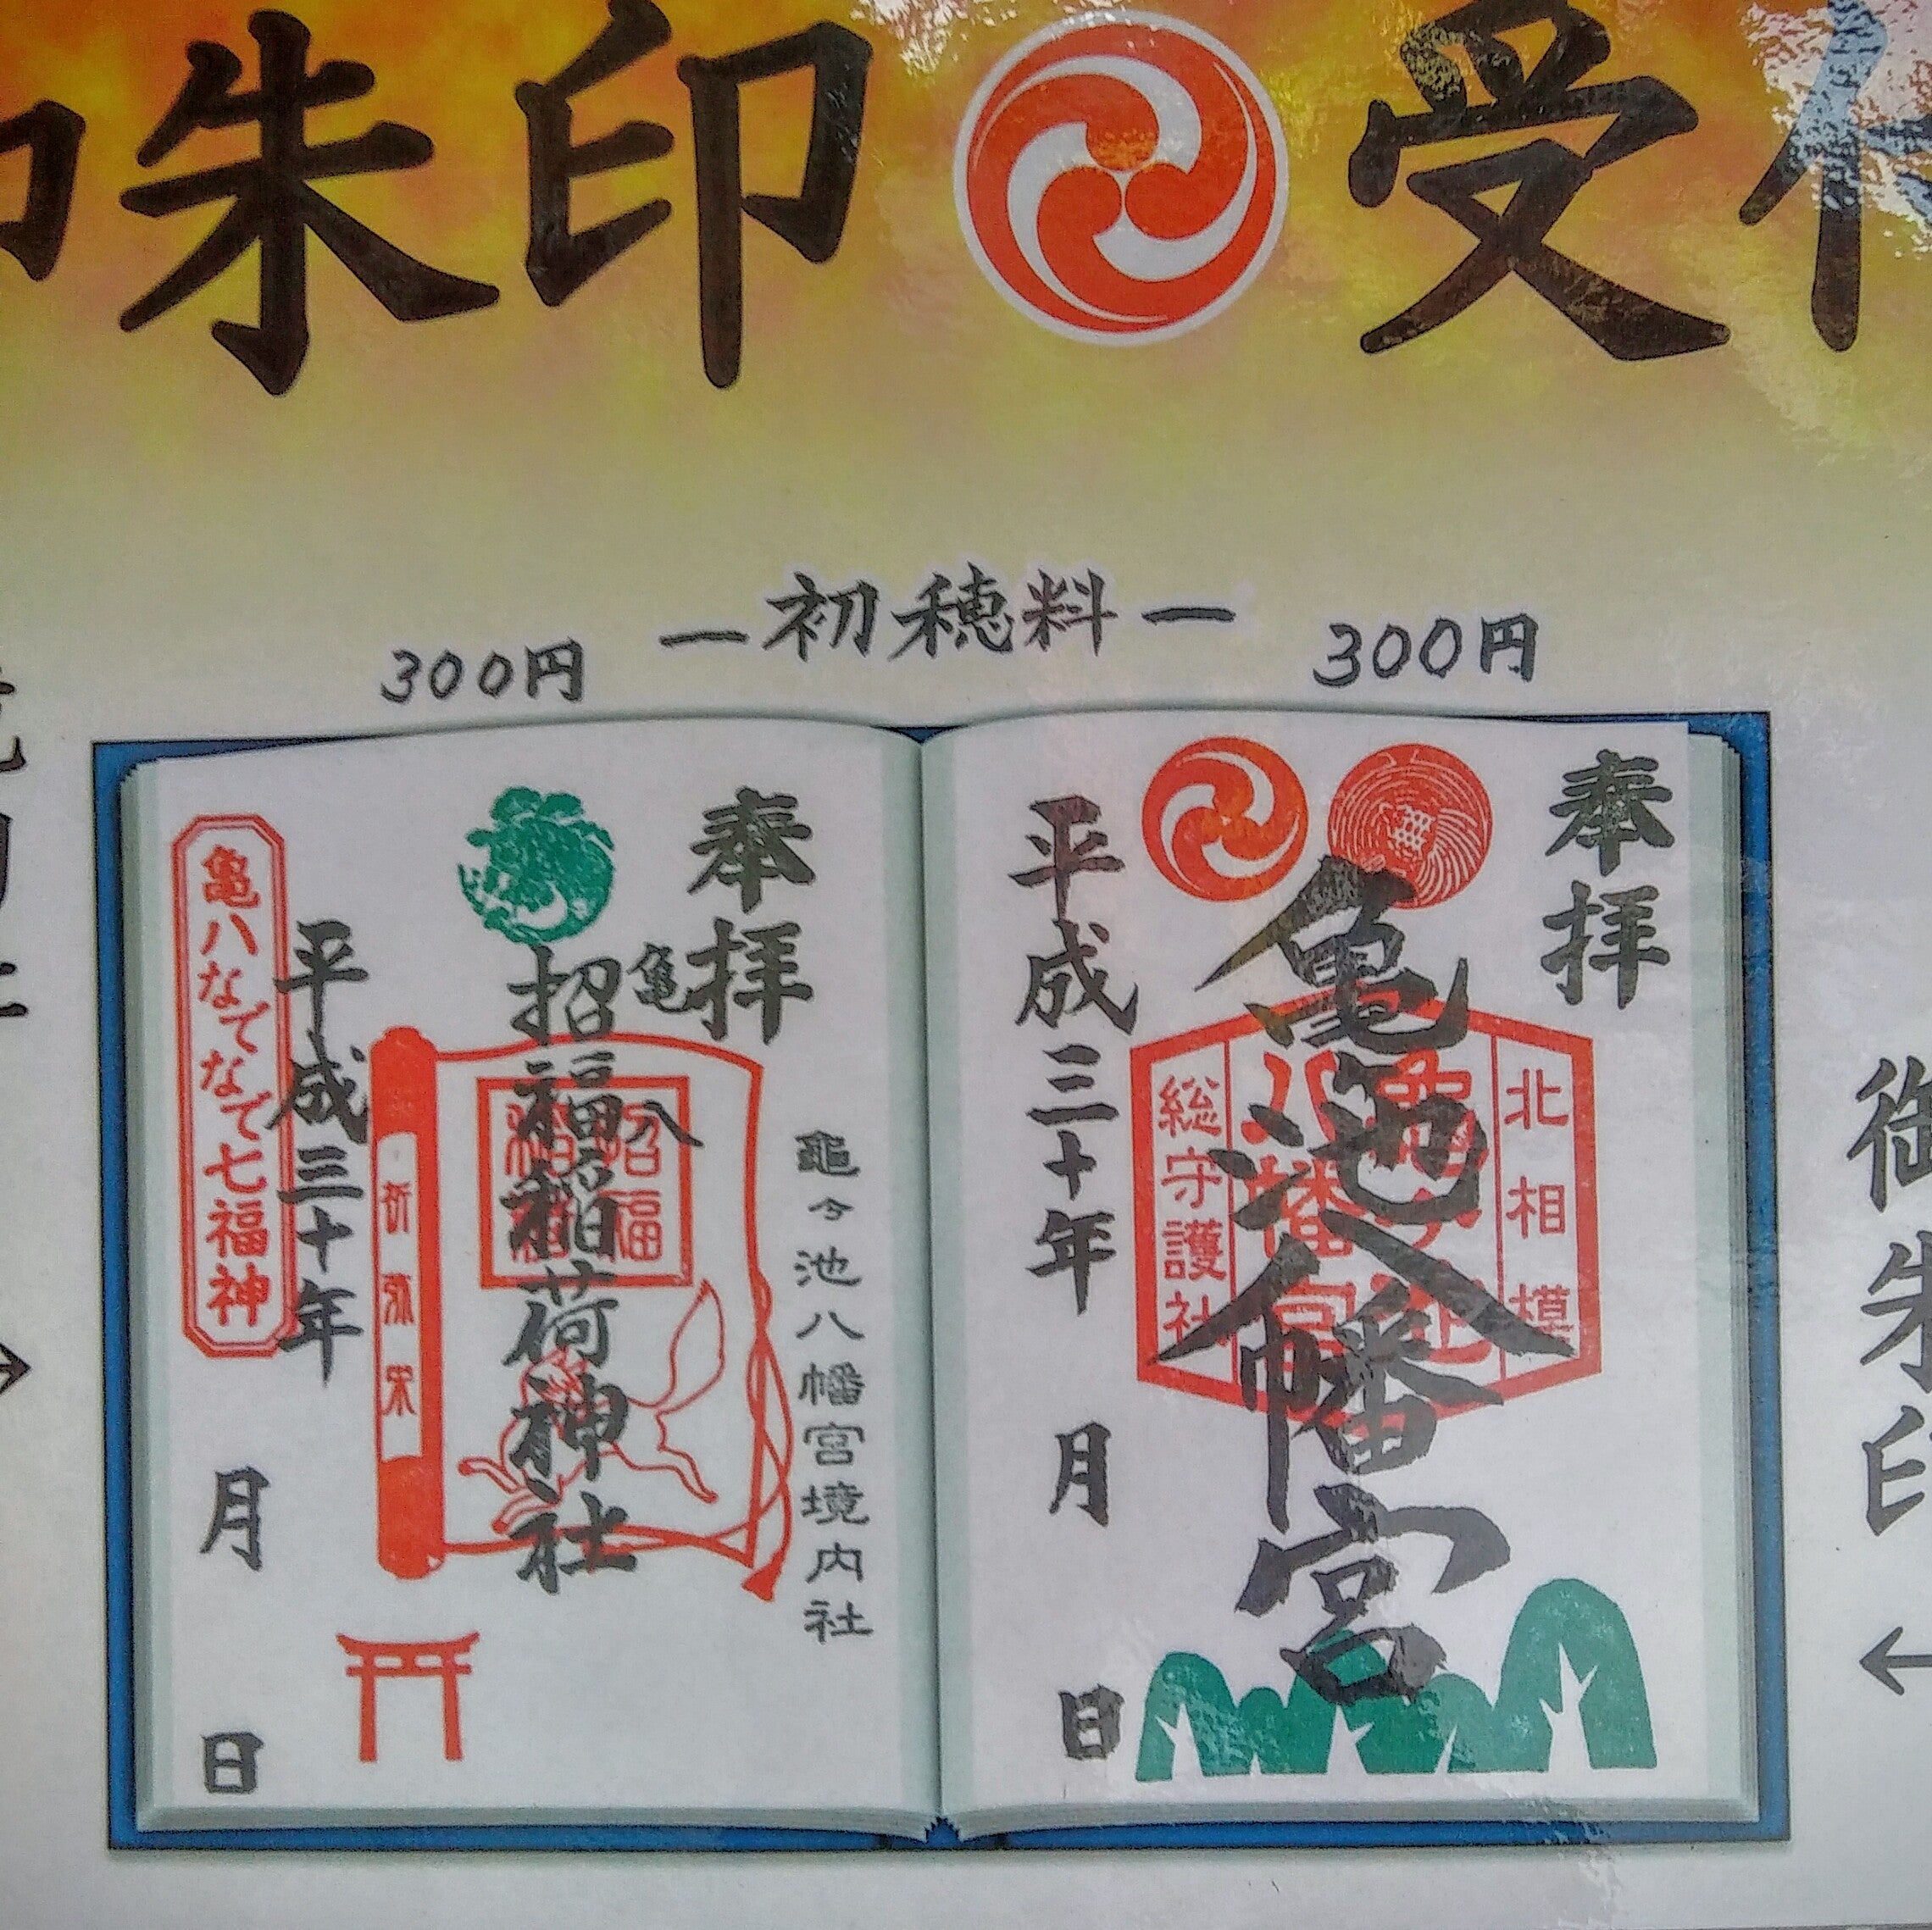 御朱印 受付
―初穂料―
300円
300円
奉拝
亀池八幡宮
北相模
亀ヶ池
八幡宮
総守護社
平成三十年 月 日
奉拝
亀八
招福稲荷神社
招福
龜ヶ池八幡宮境内社
平成三十年 月 日
亀八なでなで七福神
御朱印
←
→